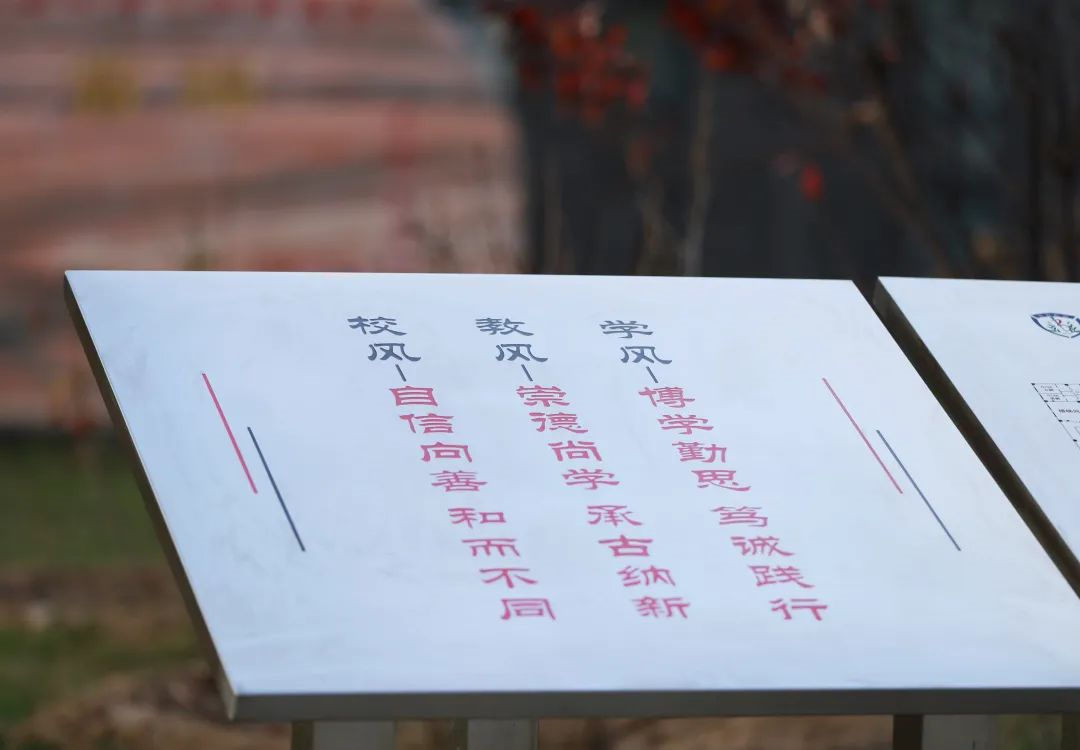 校风—自信向善 和而不同
教风—崇德尚学 承古纳新
学风—博学勤思 笃诚践行